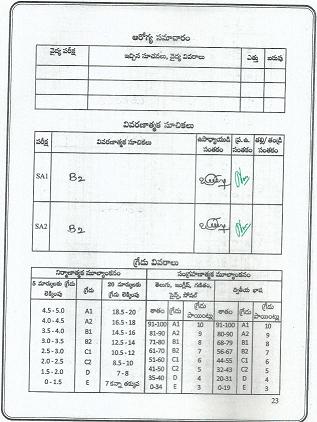 ఆరోగ్య సమాచారం
వైద్య పరీక్ష ఇచ్చిన సూచనలు, వైద్య వివరాలు ఎత్తు బరువు
వివరణాత్మక సూచికలు
పరీక్ష వివరణాత్మక సూచికలు ఉపాధ్యాయుడి సంతకం ప్ర.ఉ. సంతకం తల్లి/తండ్రి సంతకం
SA1 B2
SA2 B2
గ్రేడు వివరాలు
నిర్మాణాత్మక మూల్యాంకనం సంగ్రహణాత్మక మూల్యాంకనం
5 మార్కులకు లెక్కింపు గ్రేడు 20 మార్కులకు లెక్కింపు తెలుగు, ఇంగ్లీష్, గణితం, సైన్స్, సోషల్ ద్వితీయ భాష
శాతం గ్రేడు గ్రేడు పాయింట్లు శాతం గ్రేడు గ్రేడు పాయింట్లు
4.5 - 5.0 A1 18.5 - 20 91-100 A1 10 91-100 A1 10
4.0 - 4.5 A2 16.5 - 18 81-90 A2 9 80-90 A2 9
3.5 - 4.0 B1 14.5 - 16 71-80 B1 8 68-79 B1 8
3.0 - 3.5 B2 12.5 - 14 61-70 B2 7 56-67 B2 7
2.5 - 3.0 C1 10.5 - 12 51-60 C1 6 44-55 C1 6
2.0 - 2.5 C2 8.5 - 10 41-50 C2 5 32-43 C2 5
1.5 - 2.0 D 7 - 8 35-40 D 4 20-31 D 4
0 - 1.5 E 7 కన్నా తక్కువ 0-34 E 3 0-19 E 3
23